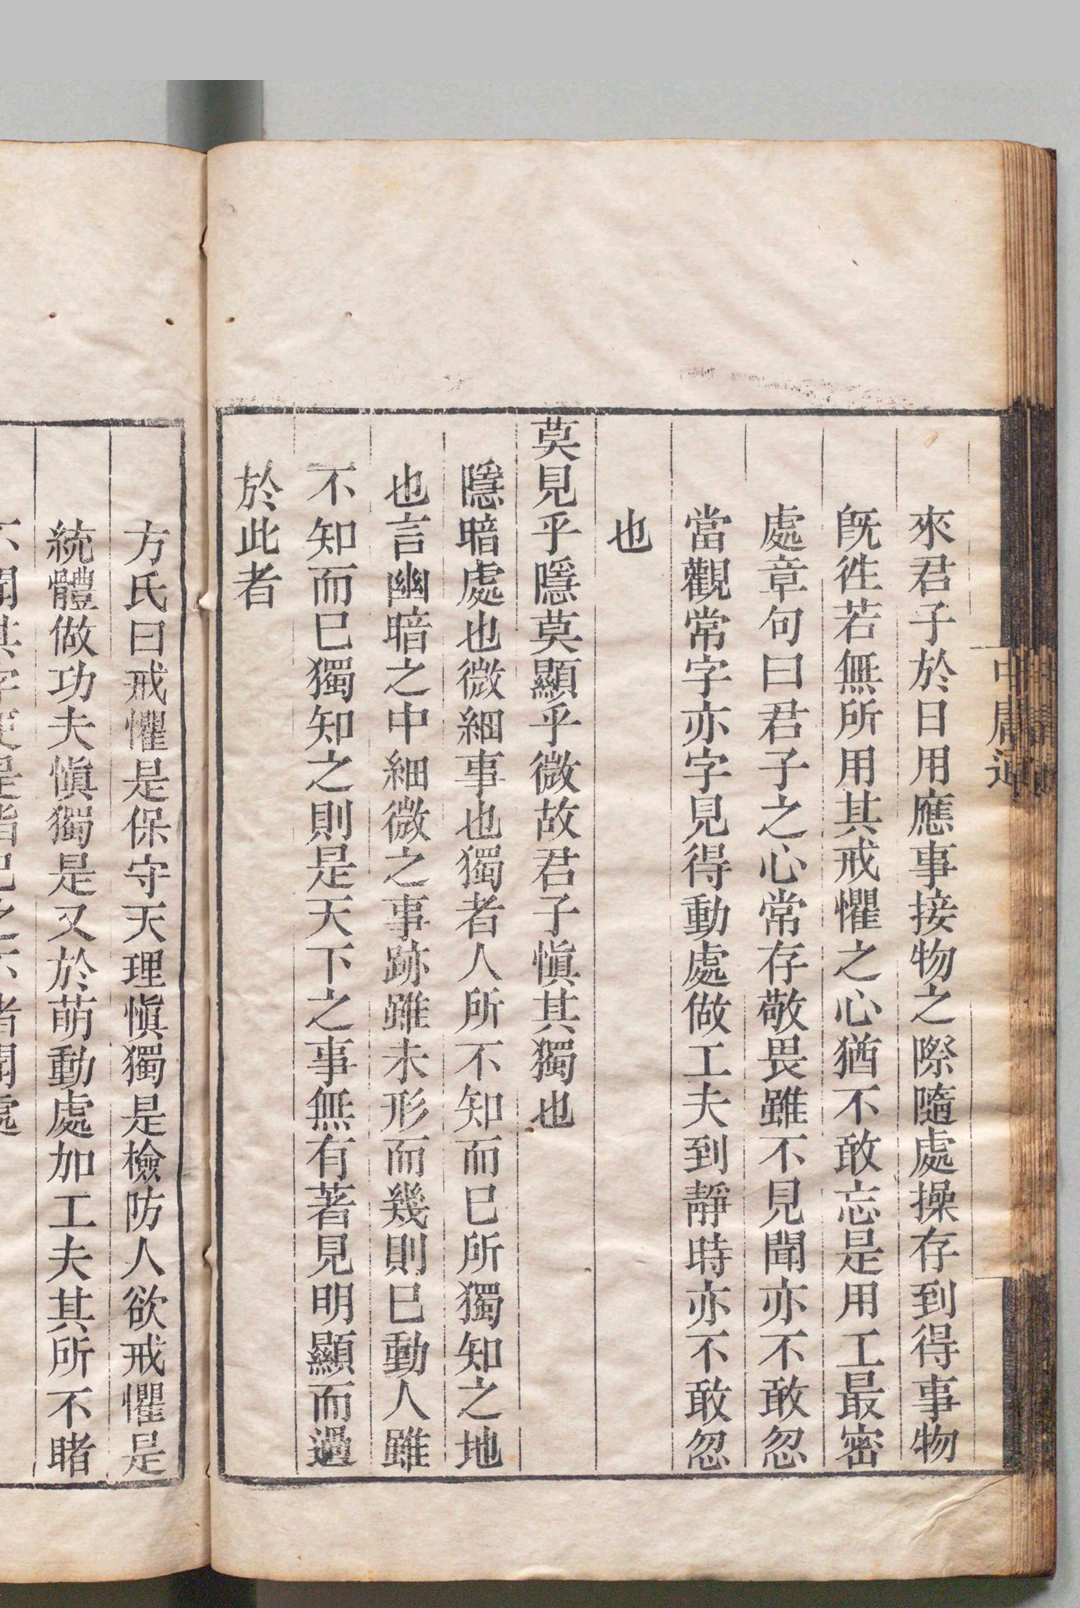 來君子於日用應事接物之際隨處操存到得事物
旣徃若無所用其戒懼之心猶不敢忘是用工最密
處章句曰君子之心常存敬畏雖不見聞亦不敢忽
當觀常字亦字見得動處做工夫到靜時亦不敢忽
也
莫見乎隱莫顯乎微故君子愼其獨也
隱暗處也微細事也獨者人所不知而巳所獨知之地
也言幽暗之中細微之事跡雖未形而幾則巳動人雖
不知而巳獨知之則是天下之事無有著見明顯而過
於此者
方氏曰戒懼是保守天理愼獨是檢防人欲戒懼是
統體做功夫愼獨是又於萌動處加工夫其所不睹